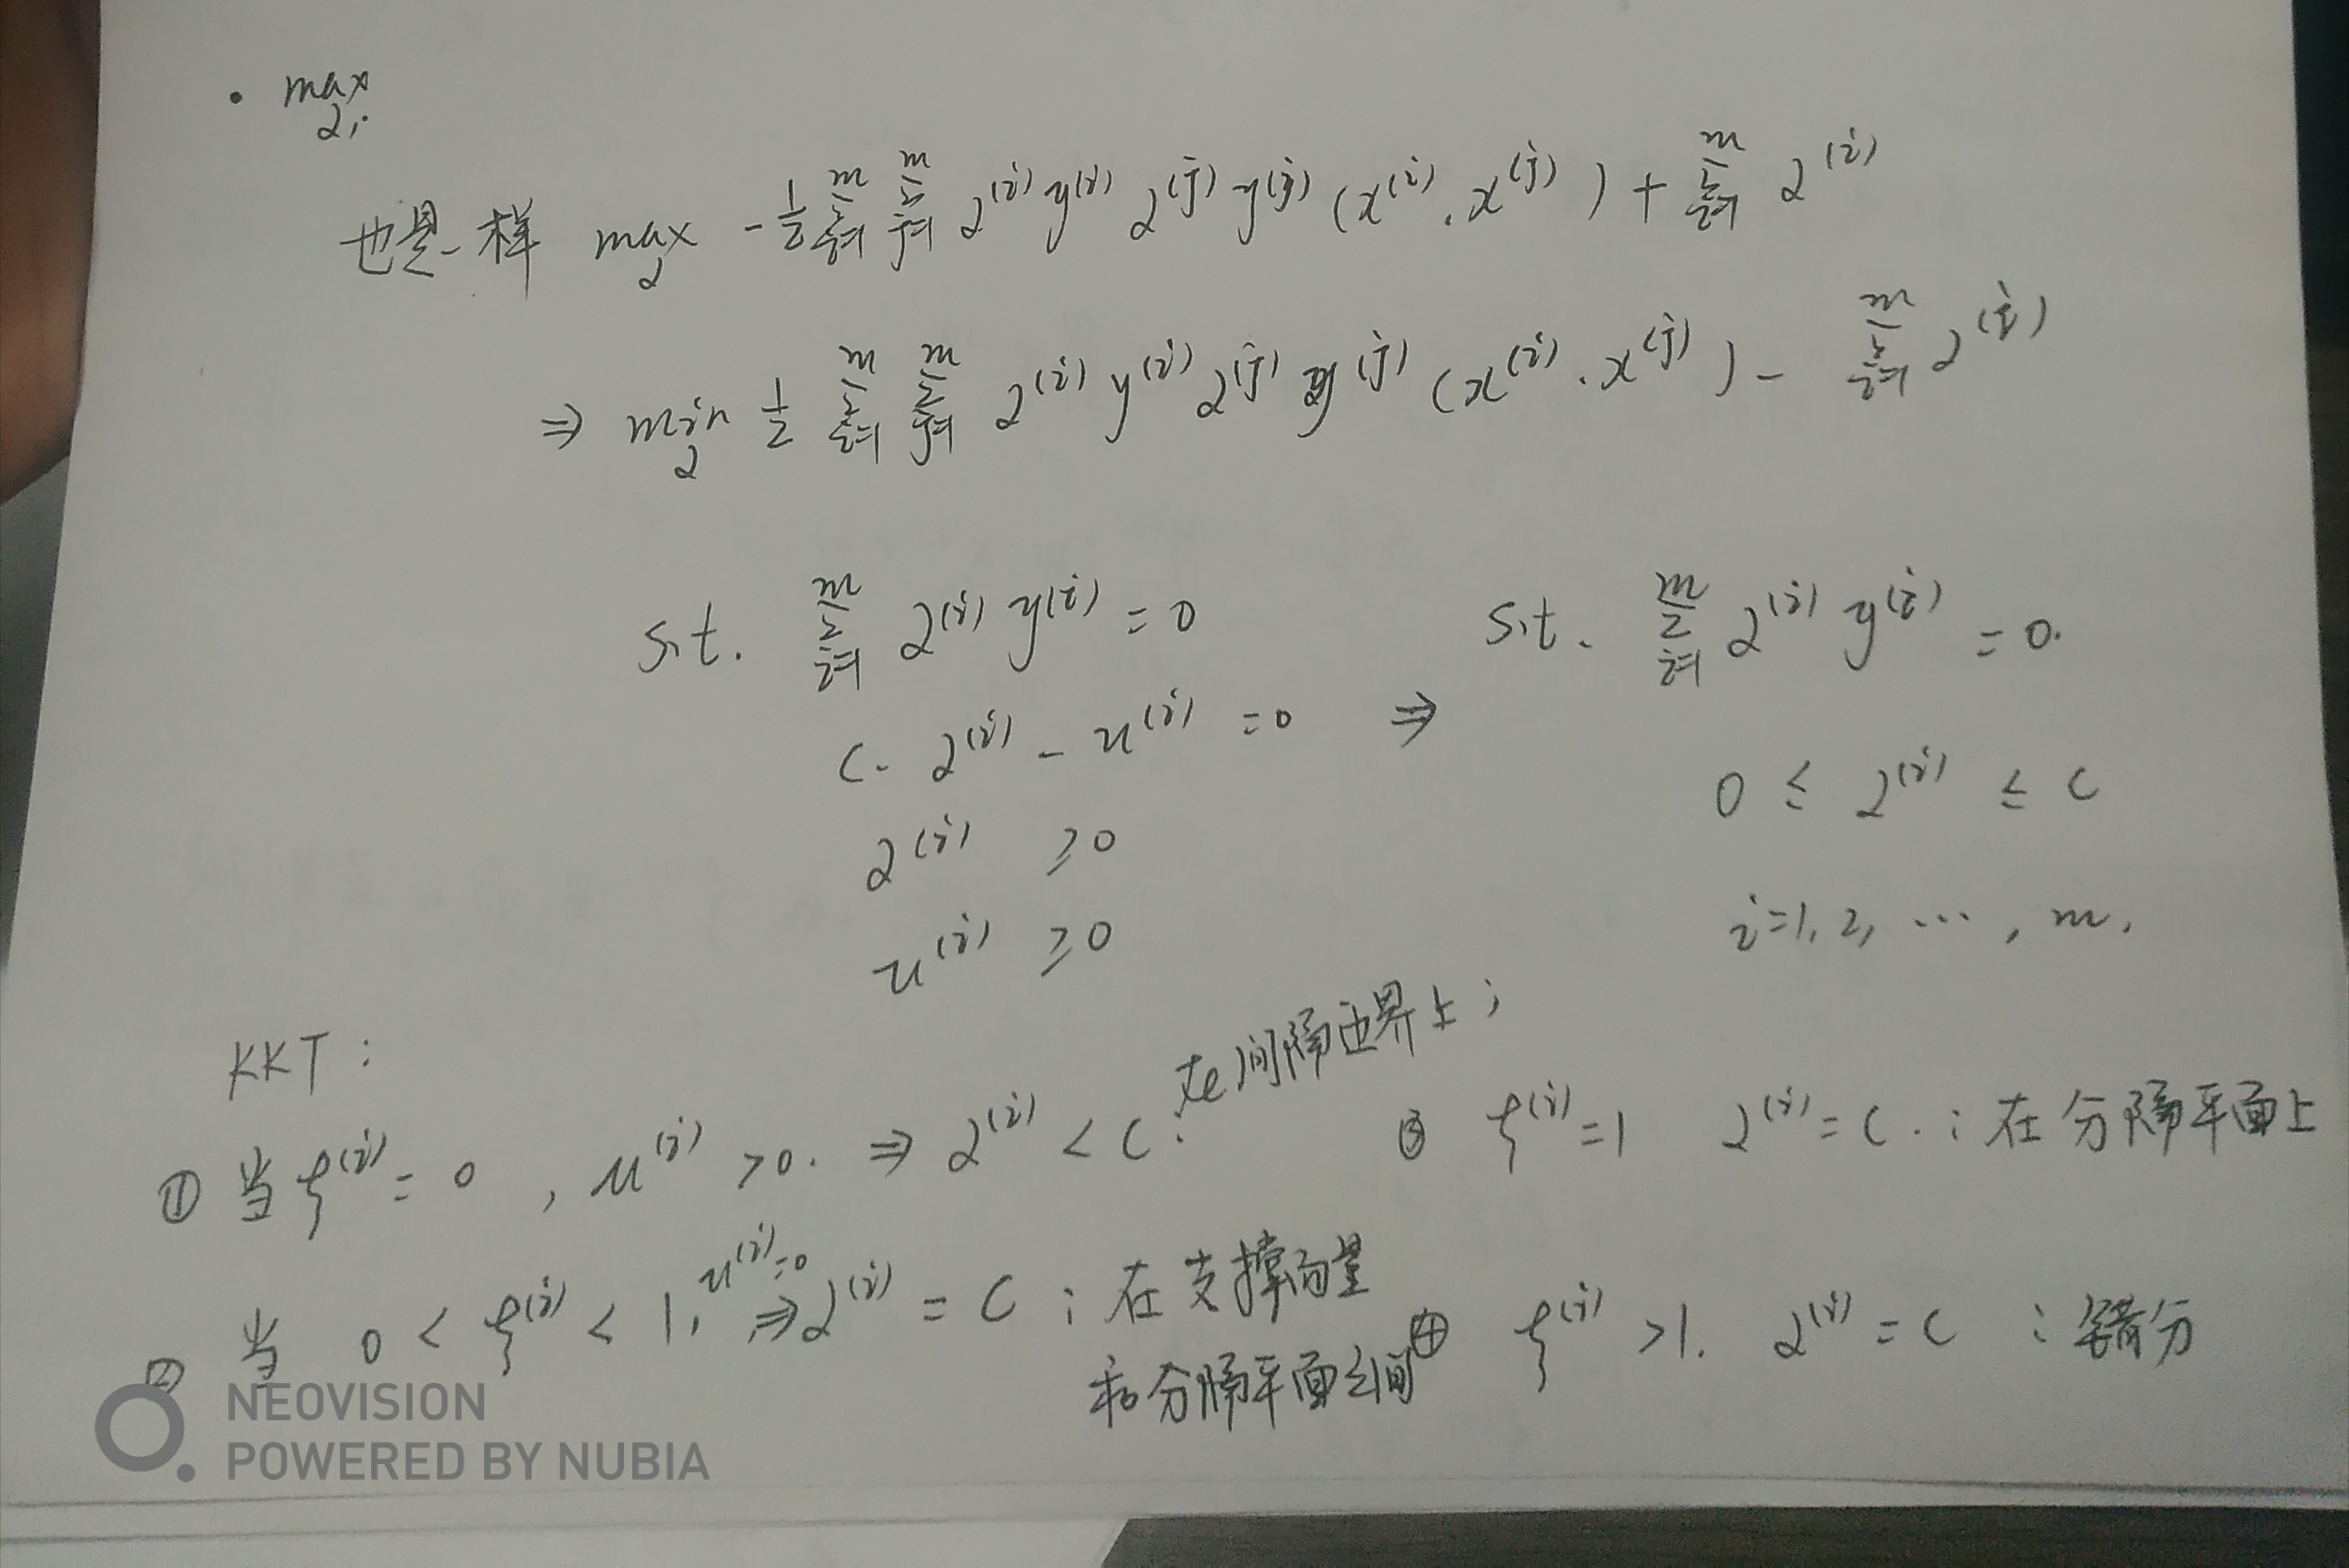 · max
α,·
也是一样 max_α -1/2 Σ_{i=1}^m Σ_{j=1}^m α^(i) y^(i) α^(j) y^(j) (x^(i) · x^(j)) + Σ_{i=1}^m α^(i)
⇒ min_α 1/2 Σ_{i=1}^m Σ_{j=1}^m α^(i) y^(i) α^(j) y^(j) (x^(i) · x^(j)) - Σ_{i=1}^m α^(i)
s.t. Σ_{i=1}^m α^(i) y^(i) = 0
C - α^(i) - u^(i) = 0 ⇒
α^(i) ≥ 0
u^(i) ≥ 0
s.t. Σ_{i=1}^m α^(i) y^(i) = 0.
0 ≤ α^(i) ≤ C
i=1, 2, ⋯, m.
KKT:
① 当 ξ^(i) = 0, u^(i) > 0. ⇒ α^(i) < C: 在间隔边界上;
② 当 0 < ξ^(i) < 1, u^(i)=0 ⇒ α^(i) = C; 在支撑向量
和分隔平面之间
③ ξ^(i) = 1 α^(i) = C.: 在分隔平面上
④ ξ^(i) > 1. α^(i) = C : 错分
NEOVISION
POWERED BY NUBIA